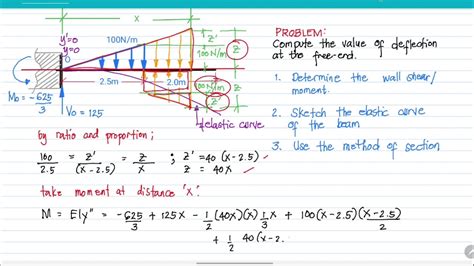 PROBLEM:
Compute the value of deflection
at the free-end.
1. Determine the wall shear/
moment.
2. Sketch the elastic curve
of the beam
3. Use the method of section
x
y'=0
y=0
100N/m
100N/m
z
2.5m
2.0m
100N/m
z'
M₀ = -625/3
V₀ = 125
elastic curve
by ratio and proportion;
100/2.5 = z'/(x-2.5) = z/x ; z' = 40(x-2.5)
z = 40x
take moment at distance 'x':
M = EIy" = -625/3 + 125x - 1/2(40x)(x)1/3x + 100(x-2.5)(x-2.5)/2
+ 1/2 40(x-2.